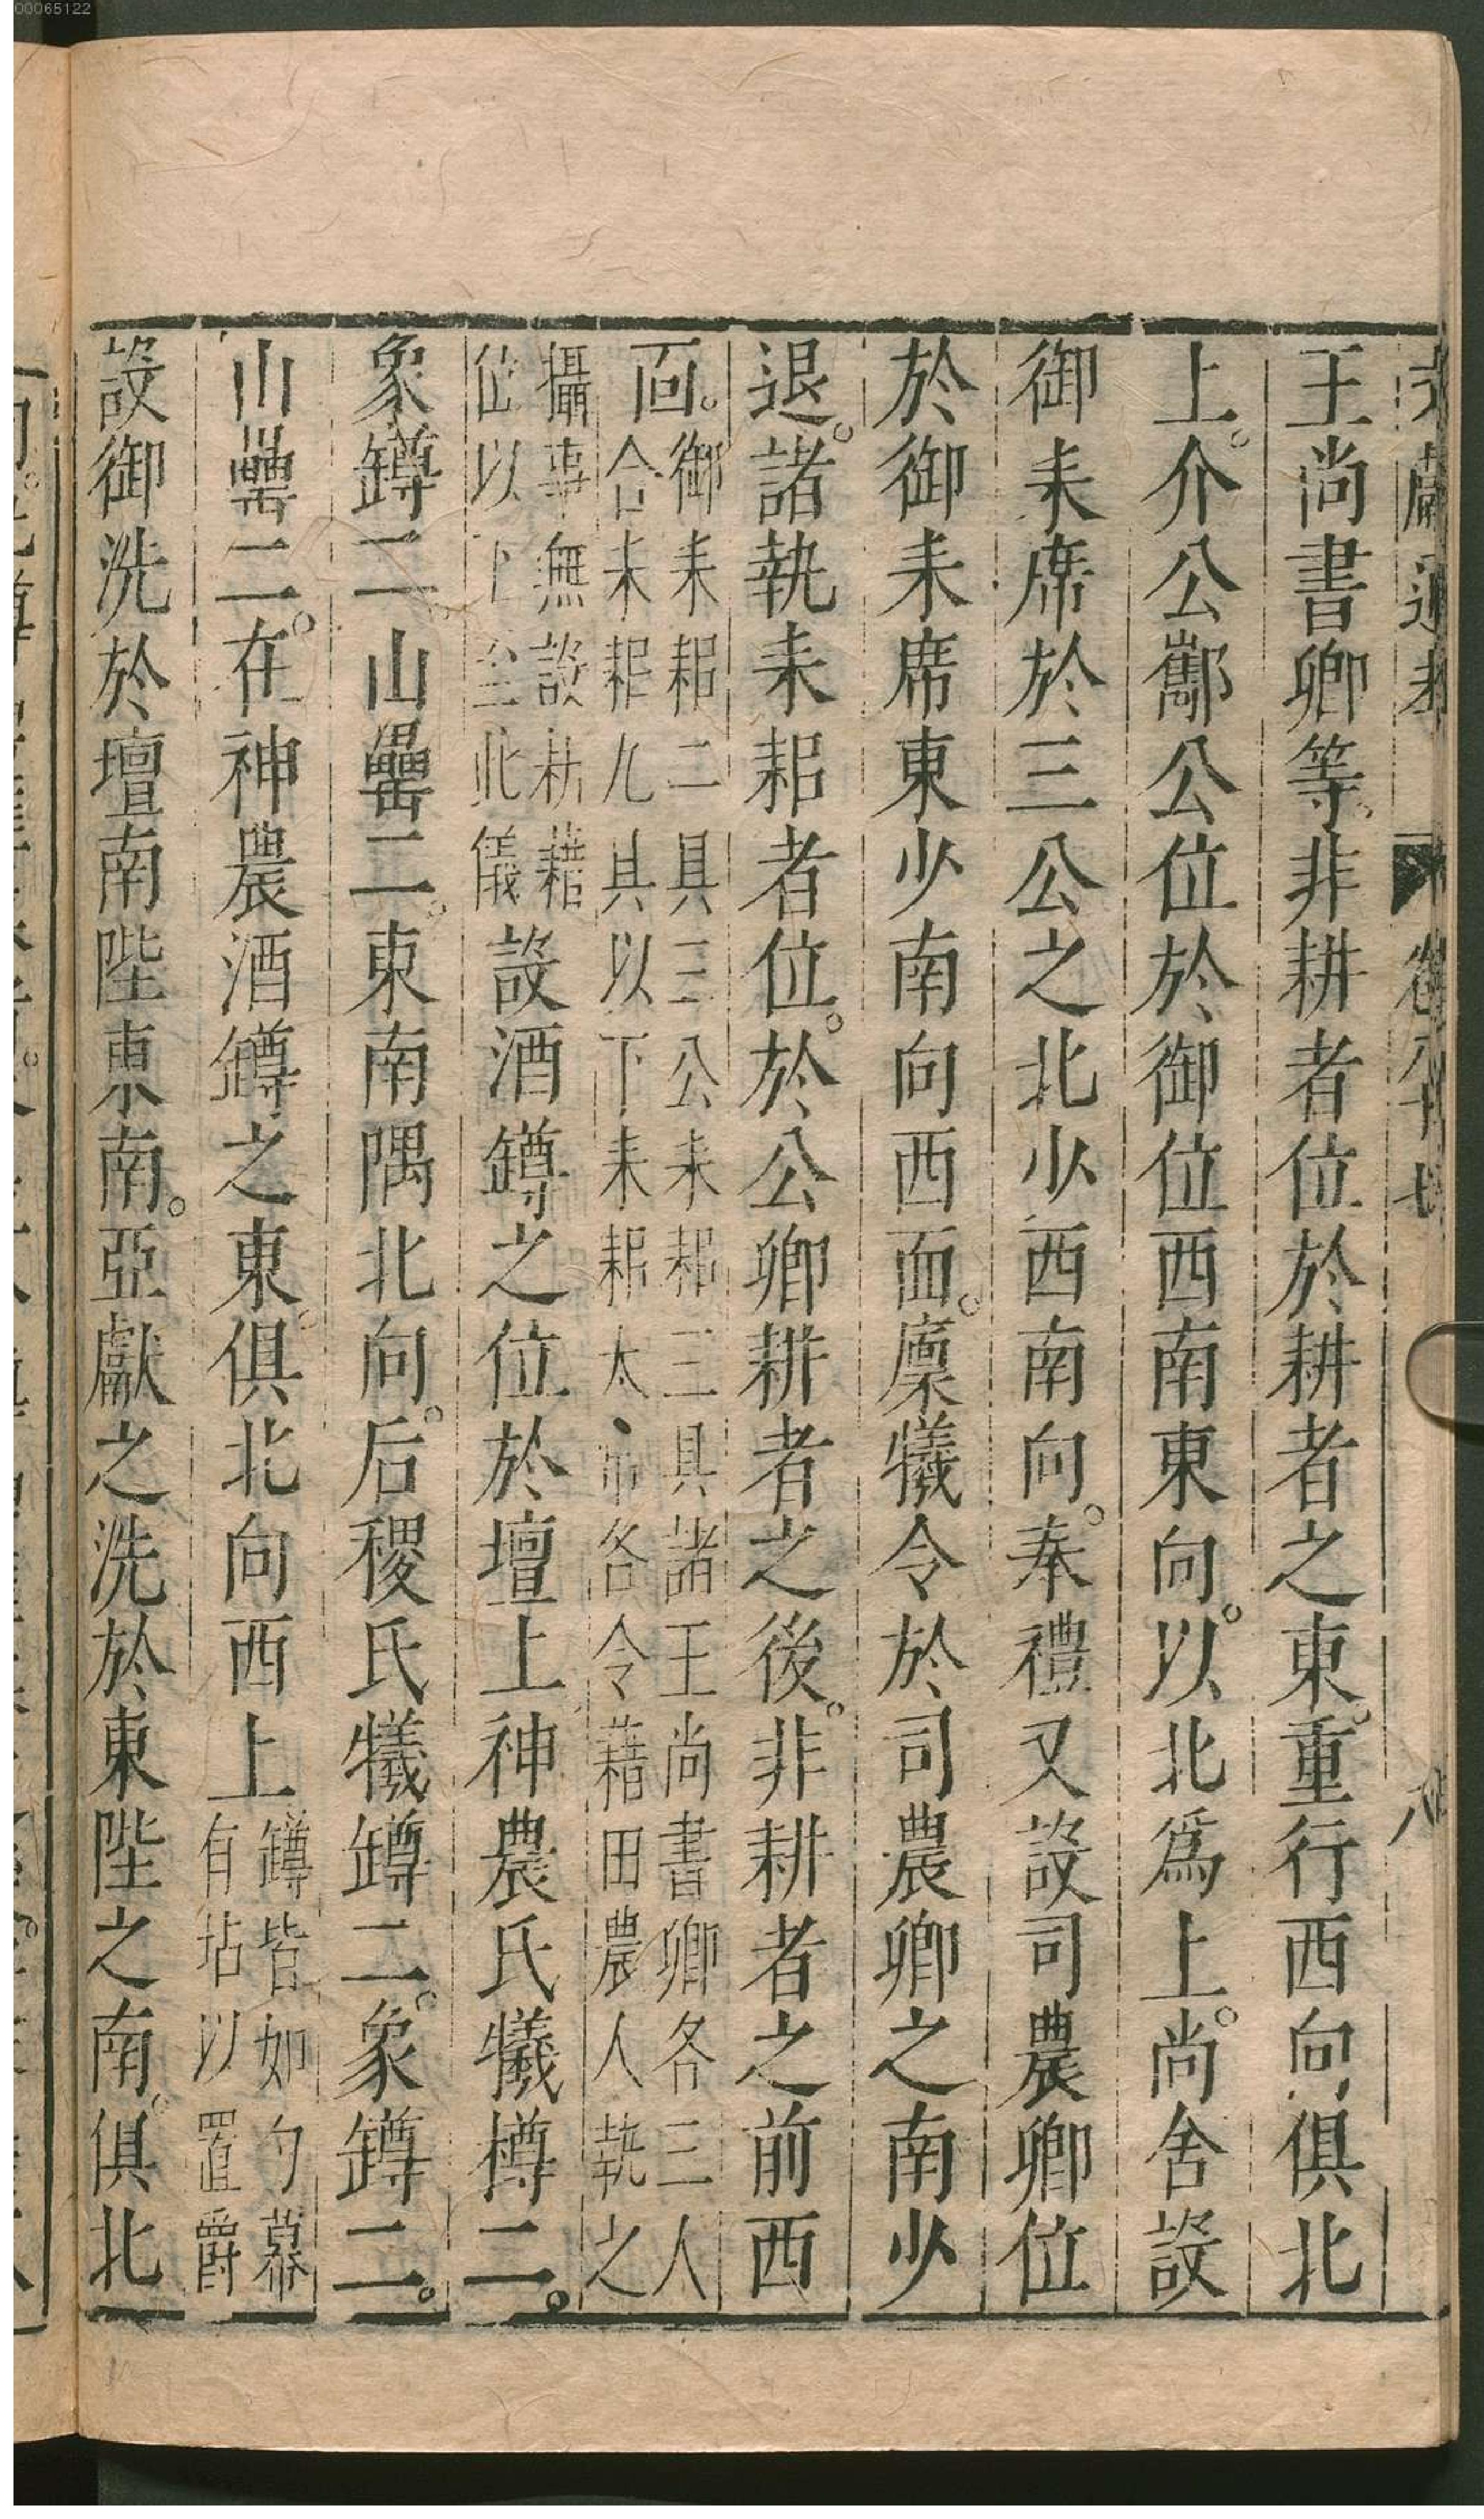 00065122
文獻通考 卷八十七 八
王尚書卿等。非耕者位於耕者之東。重行西向俱北
上。介公酅公位於御位西南東向。以北爲上。尚舍設
御耒席於三公之北少西南向。奉禮又設司農卿位
於御耒席東少南向西面。廩犧令於司農卿之南少
退。諸執耒耜者位。於公卿耕者之後。非耕者之前西
向。御耒耜二具三公耒耜三具諸王尚書卿各三人
合耒耜九具以下耒耜太常各令藉田農人執之
攝事無設耕藉
位以上至此儀設酒罇之位於壇上神農氏犧樽二。
象罇二。山罍二。東南隅北向。后稷氏犧罇二。象罇二。
山罍二。在神農酒罇之東。俱北向西上罇皆如勺幕
有坫以置爵
設御洗於壇南陛東南。亞獻之洗於東陛之南。俱北